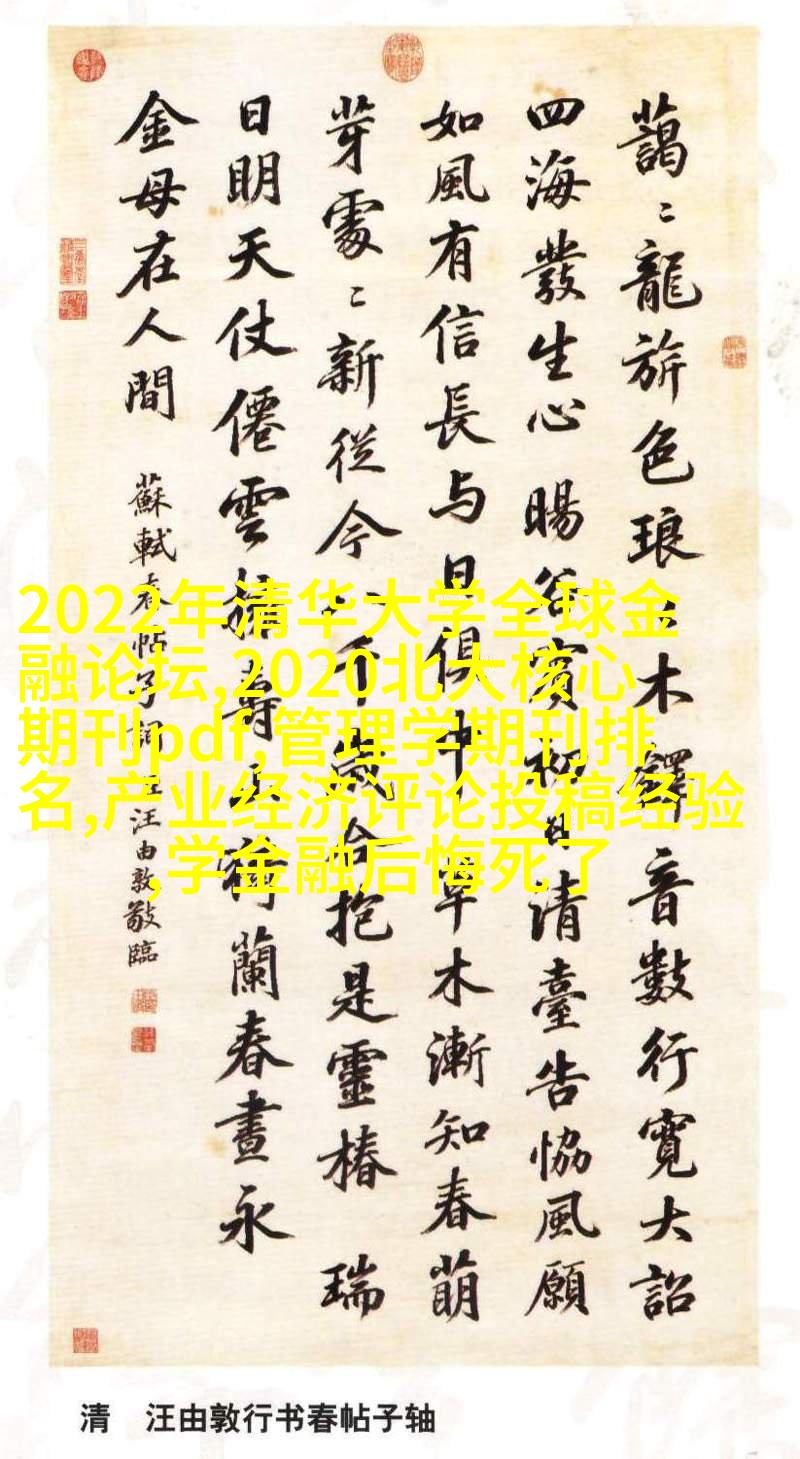 藹〻龍旂色琅〻木鐸音數行寬大詔
四海發生心 暘谷賓初日清臺告協風願
如風有信長与日俱中草木漸知春萌
芽處〻新從今八千歲合抱是靈椿 瑞
日明天仗僊雲擁壽山倚蘭春晝永
金母在人間
蘇軾春帖子詞 臣汪由敦敬臨
2022年清华大学全球金
融论坛,2020北大核心
期刊pdf,管理学期刊排
名,产业经济评论投稿经验
,学金融后悔死了
清 汪由敦行书春帖子轴